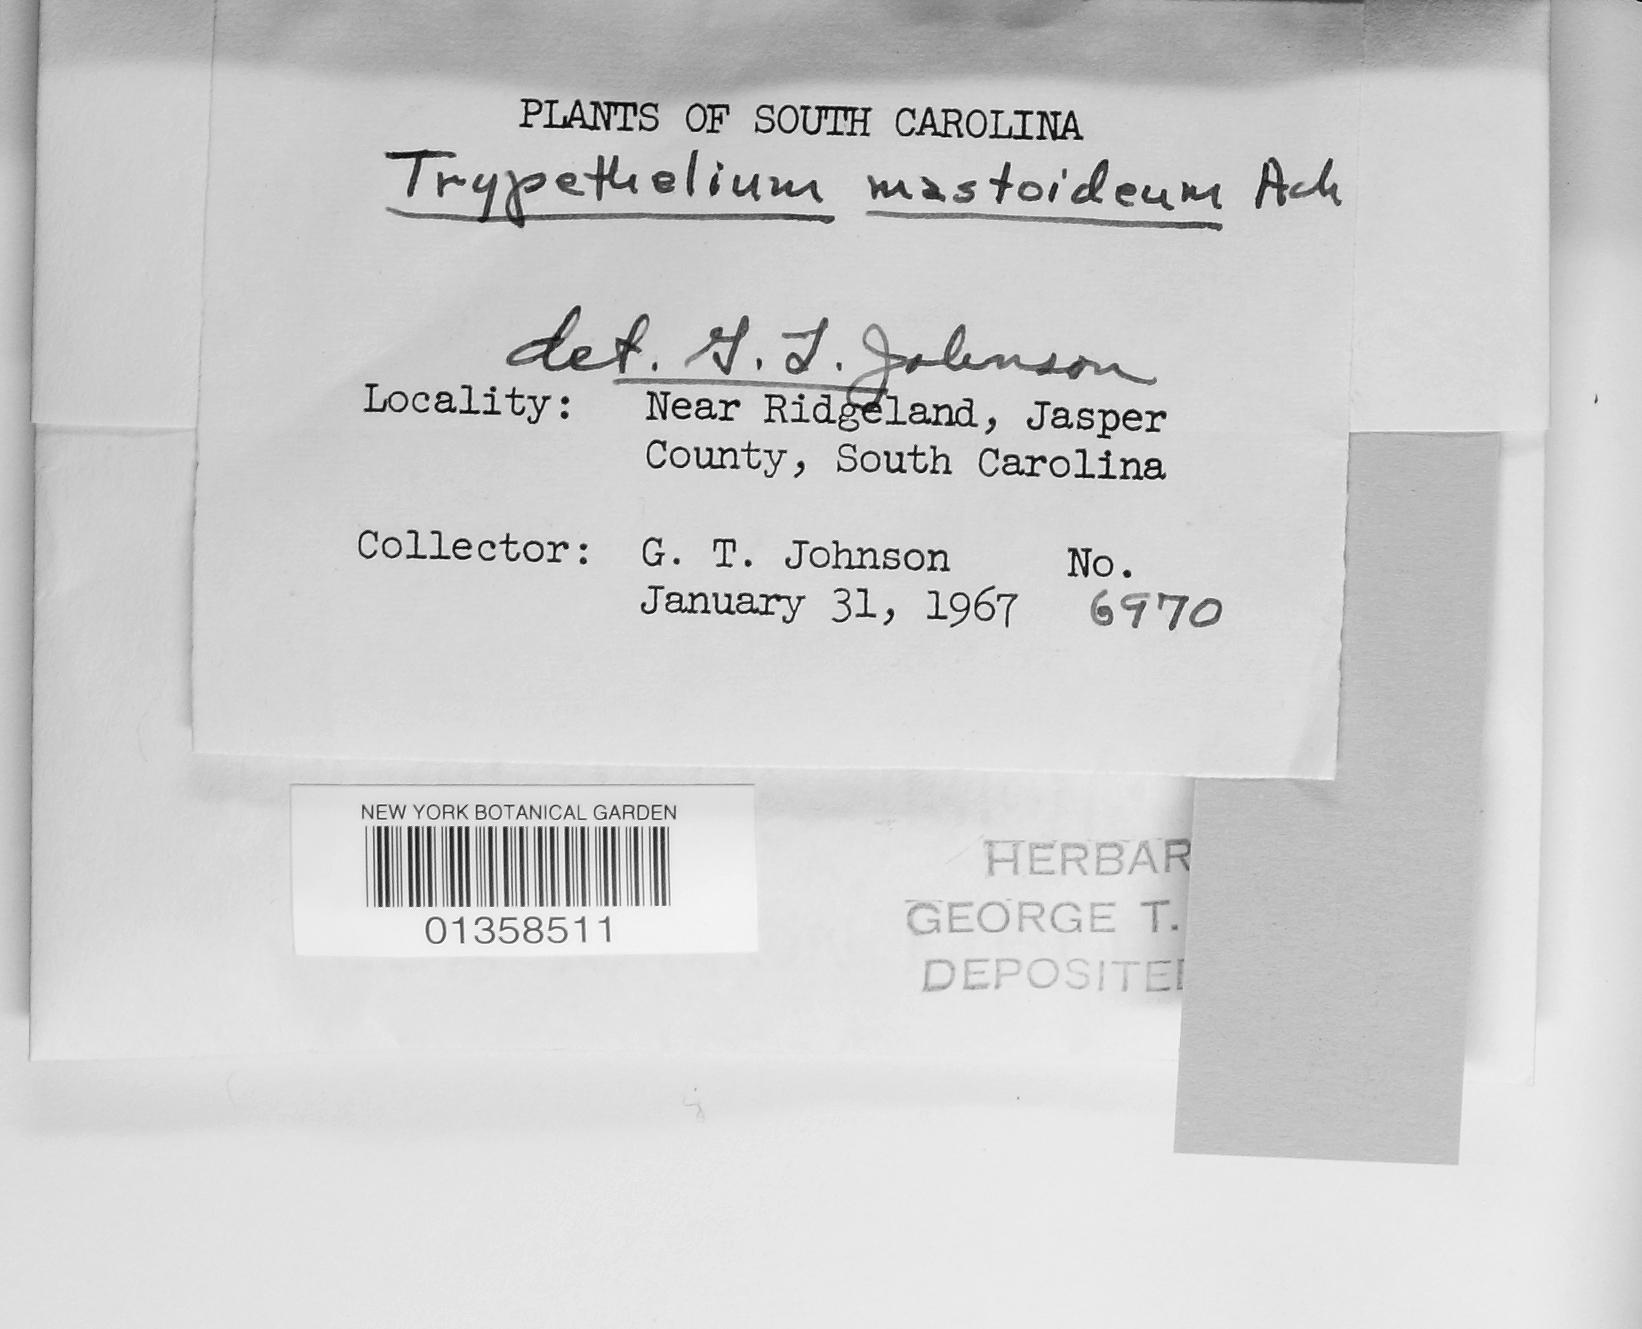 PLANTS OF SOUTH CAROLINA
Trypethelium mastoideum Ach
det. G. T. Johnson
Locality: Near Ridgeland, Jasper
County, South Carolina
Collector: G. T. Johnson No.
January 31, 1967 6970
NEW YORK BOTANICAL GARDEN
01358511
HERBAR
GEORGE T.
DEPOSITED